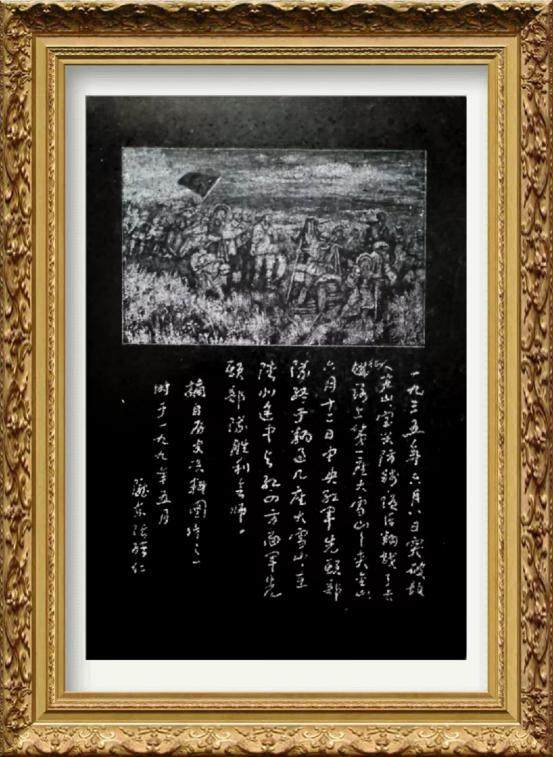 一九三五年六月八日突破敌
人芦山宝兴防线随后翻越了长
路上第一座大雪山——夹金山
六月十二日中央红军先头部
队终于翻过几座大雪山，在
小途中与红四方面军先
头部队胜利会师。
摘自历史资料图片之一
时于一九九年五月
东仁